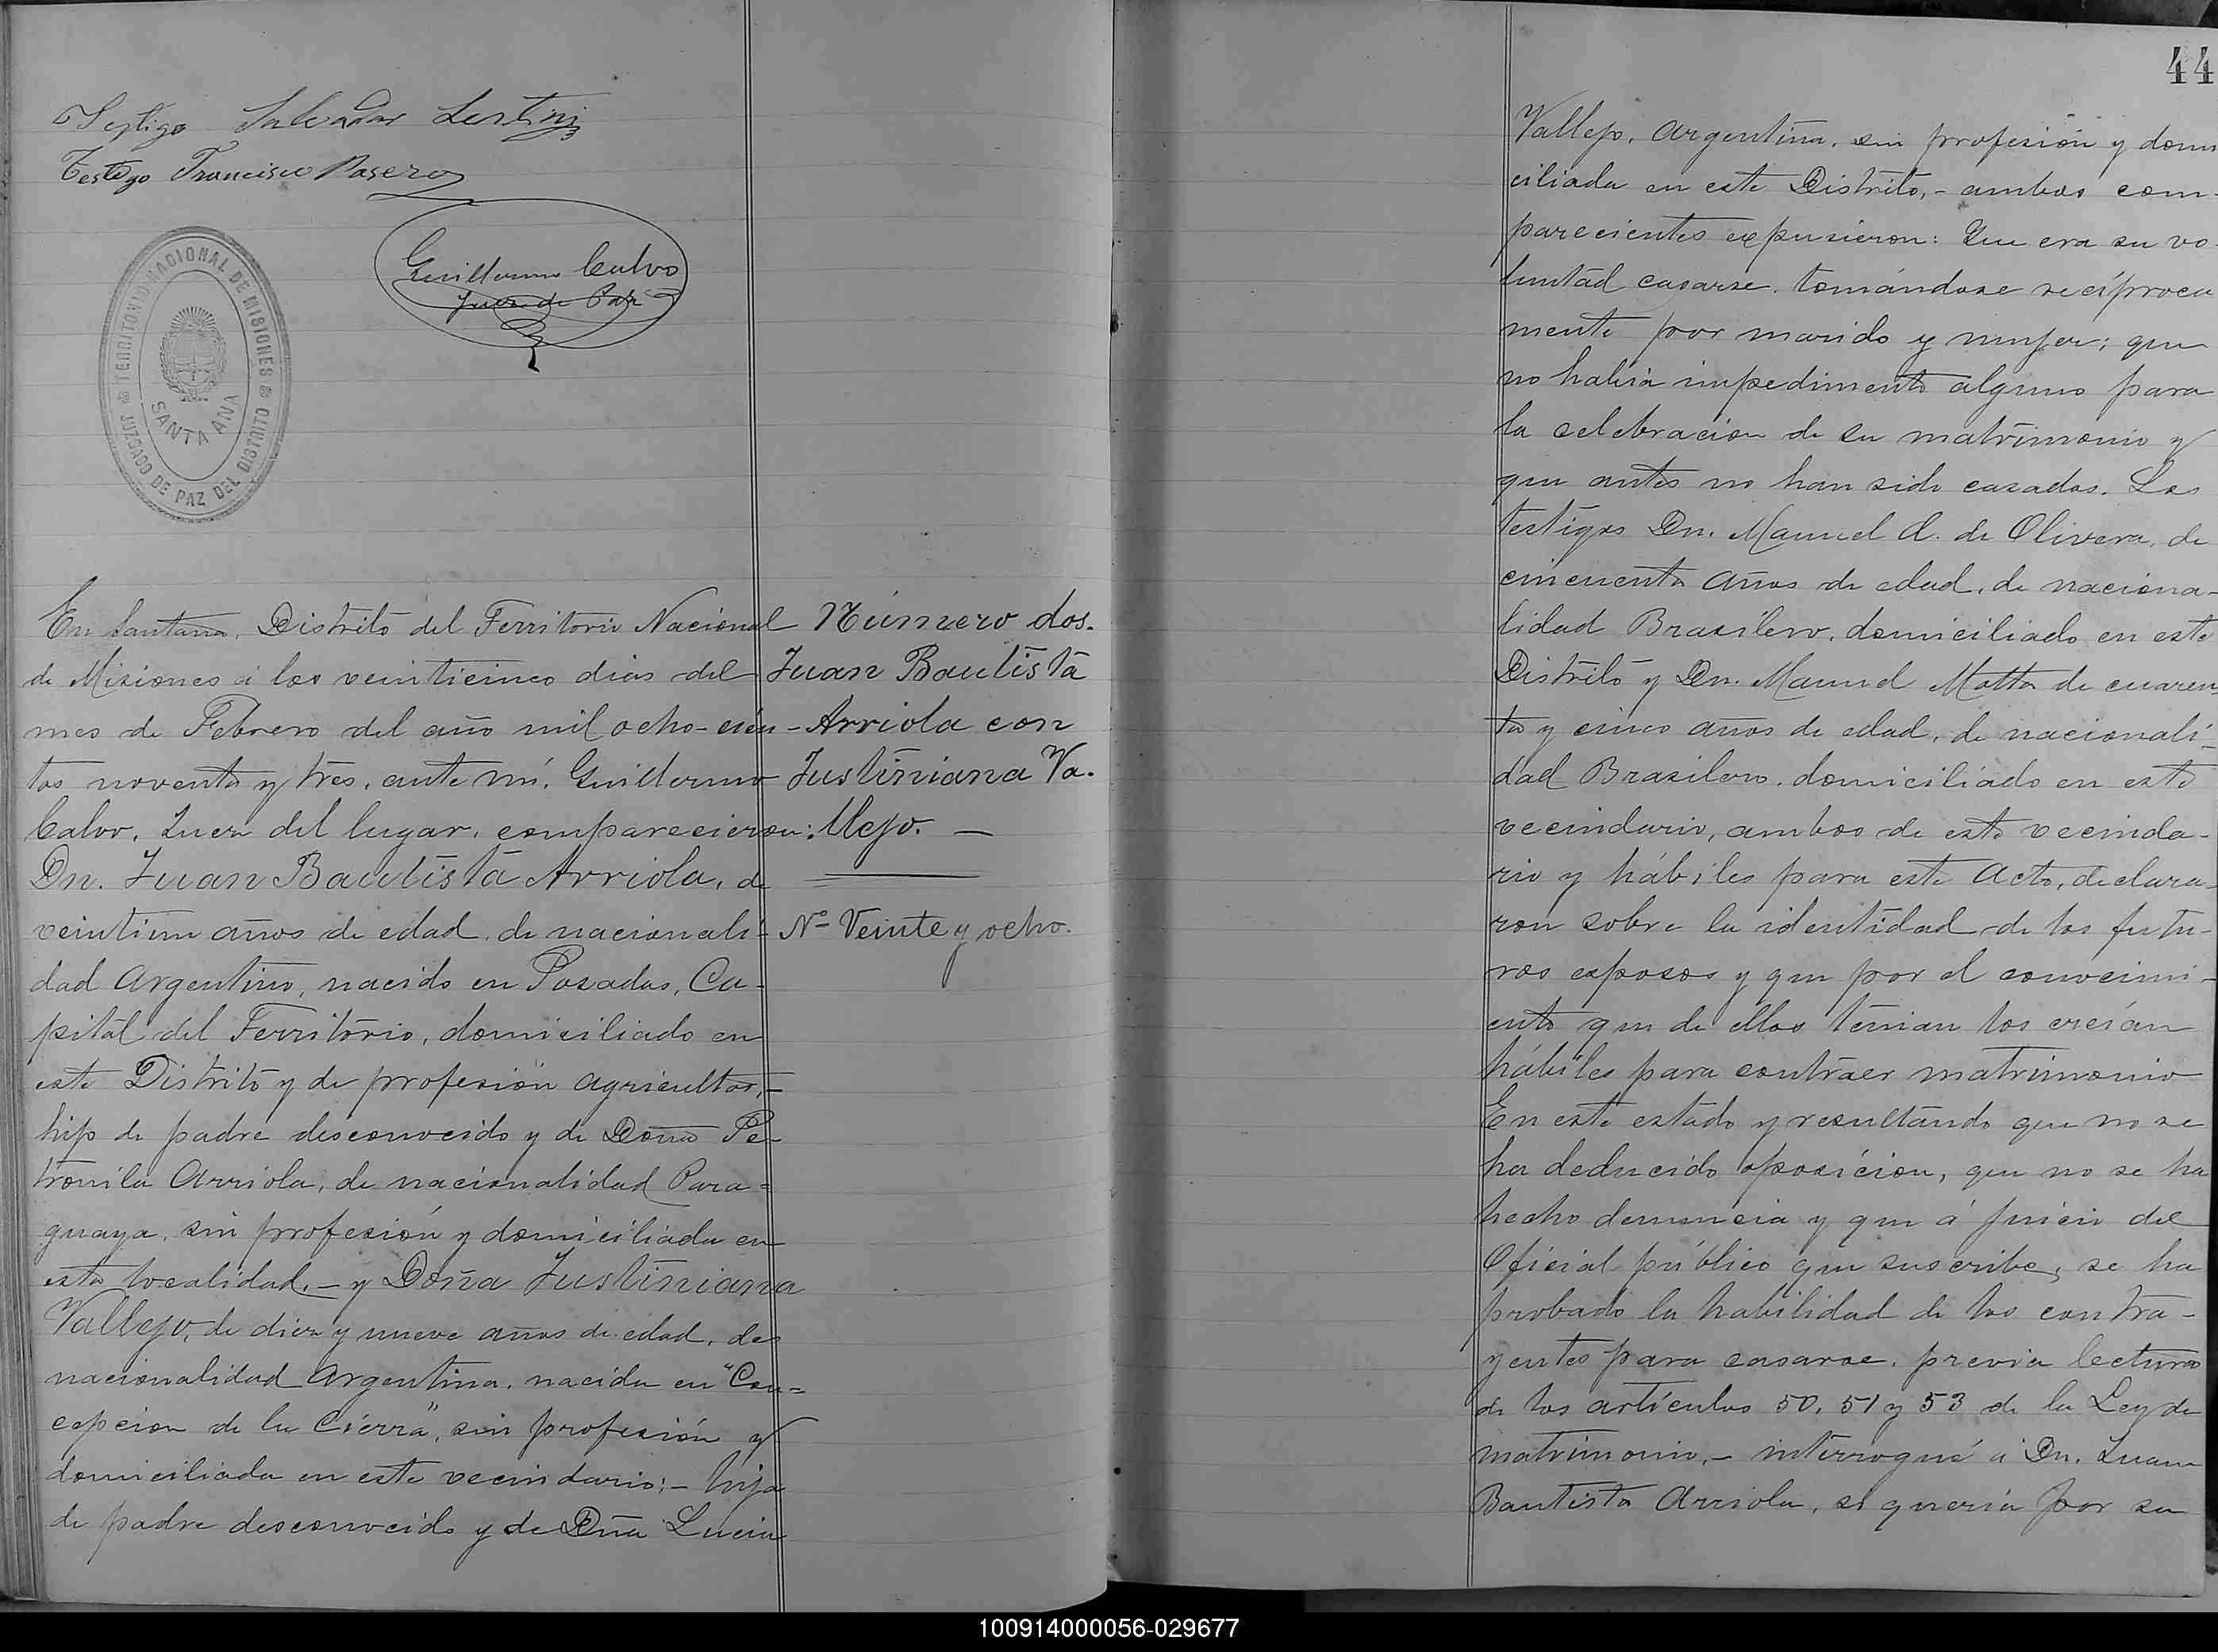 Testigo Salvador Lentini
Testigo Francisco Pasero
Guillermo Calvo
Juez de Paz
TERRITORIO NACIONAL DE MISIONES
JUZGADO DE PAZ DEL DISTRITO
SANTA ANA
En Santana, Distrito del Territorio Nacional
de Misiones á los veinticinco dias del
mes de Febrero del año mil ocho-cien-
tos noventa y tres, ante mí, Guillermo
Calvo, Juez del lugar, comparecieron:
Dn. Juan Bautista Arriola, de
veintiun años de edad, de nacionali-
dad Argentino, nacido en Posadas, Ca-
pital del Territorio, domiciliado en
este Distrito y de profesión agricultor,-
hijo de padre desconocido y de Doña Pe-
tronila Arriola, de nacionalidad Para=
guaya, sin profesión y domiciliada en
esta localidad,- y Doña Justiniana
Vallejo, de diez y nueve años de edad, de
nacionalidad Argentina, nacida en "Con=
cepcion de la Cierra", sin profesión y
domiciliada en este vecindario;- hija
de padre desconocido y de Dña Lucia
Número dos.
Juan Bautista
Arriola con
Justiniana Va-
llejo. —
Nº Veinte y ocho.
44
Vallejo, Argentina, sin profesión y domi
ciliada en este Distrito,- ambos com-
parecientes expusieron: Que era su vo-
luntad casarse, tomándose recíproca
mente por marido y mujer; que
no habia impedimento alguno para
la celebracion de su matrimonio y
que antes no han sido casados. Los
testigos Dn. Manuel A. de Olivera, de
cincuenta años de edad, de naciona-
lidad Brasilero, domiciliado en este
Distrito y Dn. Manuel Motta de cuaren
ta y cinco años de edad, de nacionali-
dad Brasilero, domiciliado en este
vecindario, ambos de este vecinda-
rio y hábiles para este Acto, declara-
ron sobre la identidad de los futu-
ros esposos y que por el conocimi-
ento que de ellos tenian los creían
hábiles para contraer matrimonio
En este estado y resultando que no se
ha deducido oposicion, que no se ha
hecho denuncia y que á juicio del
Oficial público que suscribe, se ha
probado la habilidad de los contra-
yentes para casarse, previa lectura
de los artículos 50, 51 y 53 de la Ley de
matrimonio,- interrogué á Dn. Juan
Bautista Arriola, si queria por su
100914000056-029677